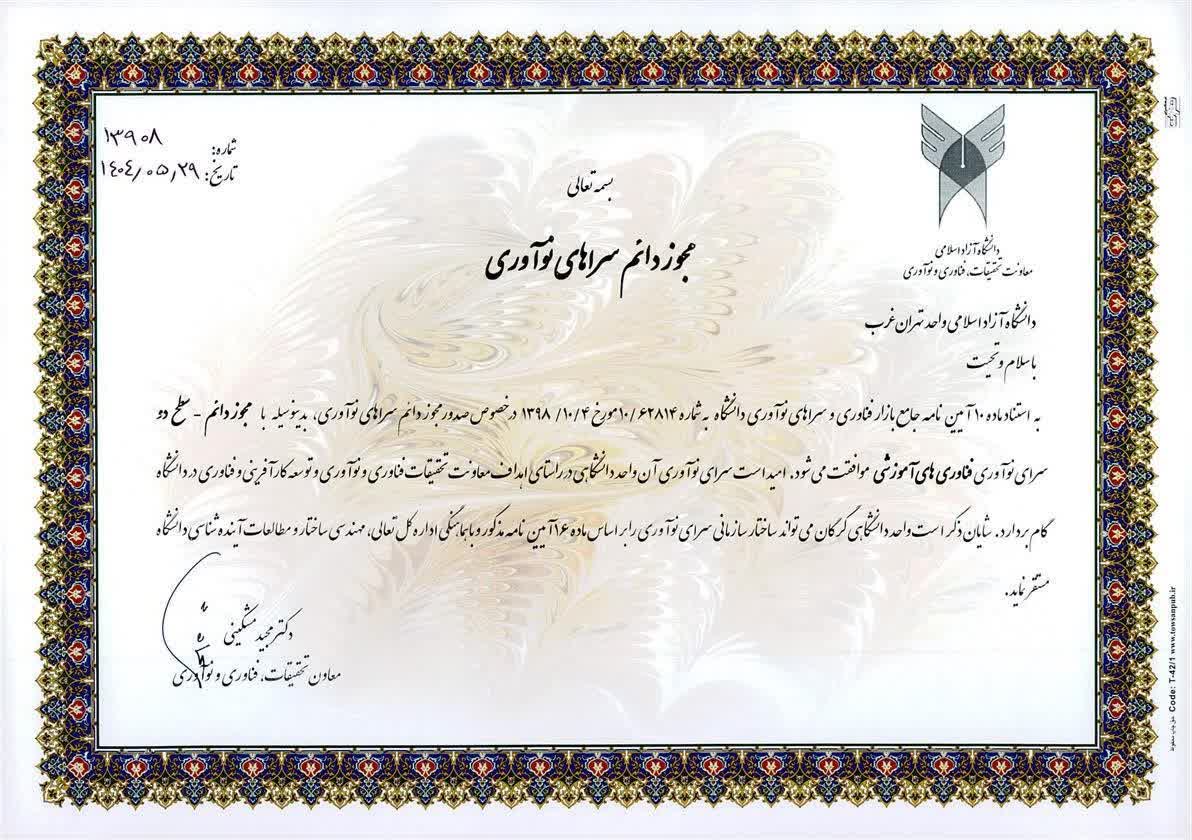 شماره: ۱۳۹۰۸
تاریخ: ۱۴۰۴/۰۵/۲۹
بسمه تعالی
مجوز دائم سراهای نوآوری
دانشگاه آزاد اسلامی
معاونت تحقیقات، فناوری و نوآوری
دانشگاه آزاد اسلامی واحد تهران غرب
با سلام و تحیت
به استناد ماده ۱۰ آیین نامه جامع بازار فناوری و سراهای نوآوری دانشگاه به شماره ۱۰/۶۲۸۱۴ مورخ ۱۳۹۸/۱۰/۴ در خصوص صدور مجوز دائم سراهای نوآوری، بدینوسیله با مجوز دائم - سطح دو
سرای نوآوری فناوری های آموزشی موافقت می شود. امید است سرای نوآوری آن واحد دانشگاهی در راستای اهداف معاونت تحقیقات فناوری و نوآوری و توسعه کارآفرینی و فناوری در دانشگاه
گام بردارد. شایان ذکر است واحد دانشگاهی گرگان می تواند ساختار سازمانی سرای نوآوری را بر اساس ماده ۱۶ آیین نامه مذکور و با هماهنگی اداره کل تعالی، مهندسی ساختار و مطالعات آینده شناسی دانشگاه
مستقر نماید.
دکتر مجید مشکینی
معاون تحقیقات، فناوری و نوآوری
Code: T-42/1 www.towsanpub.ir